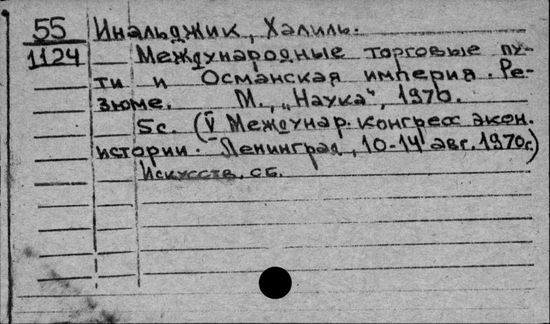 55 Инальджик, Халиль.
1124 Международные торговые пу-
ти и Османская империя. Ре-
зюме. М., „Наука", 1970.
5с. (V Междунар. конгресс экон.
истории. Ленинград, 10-14 авг. 1970г.)
Искусств. сб.